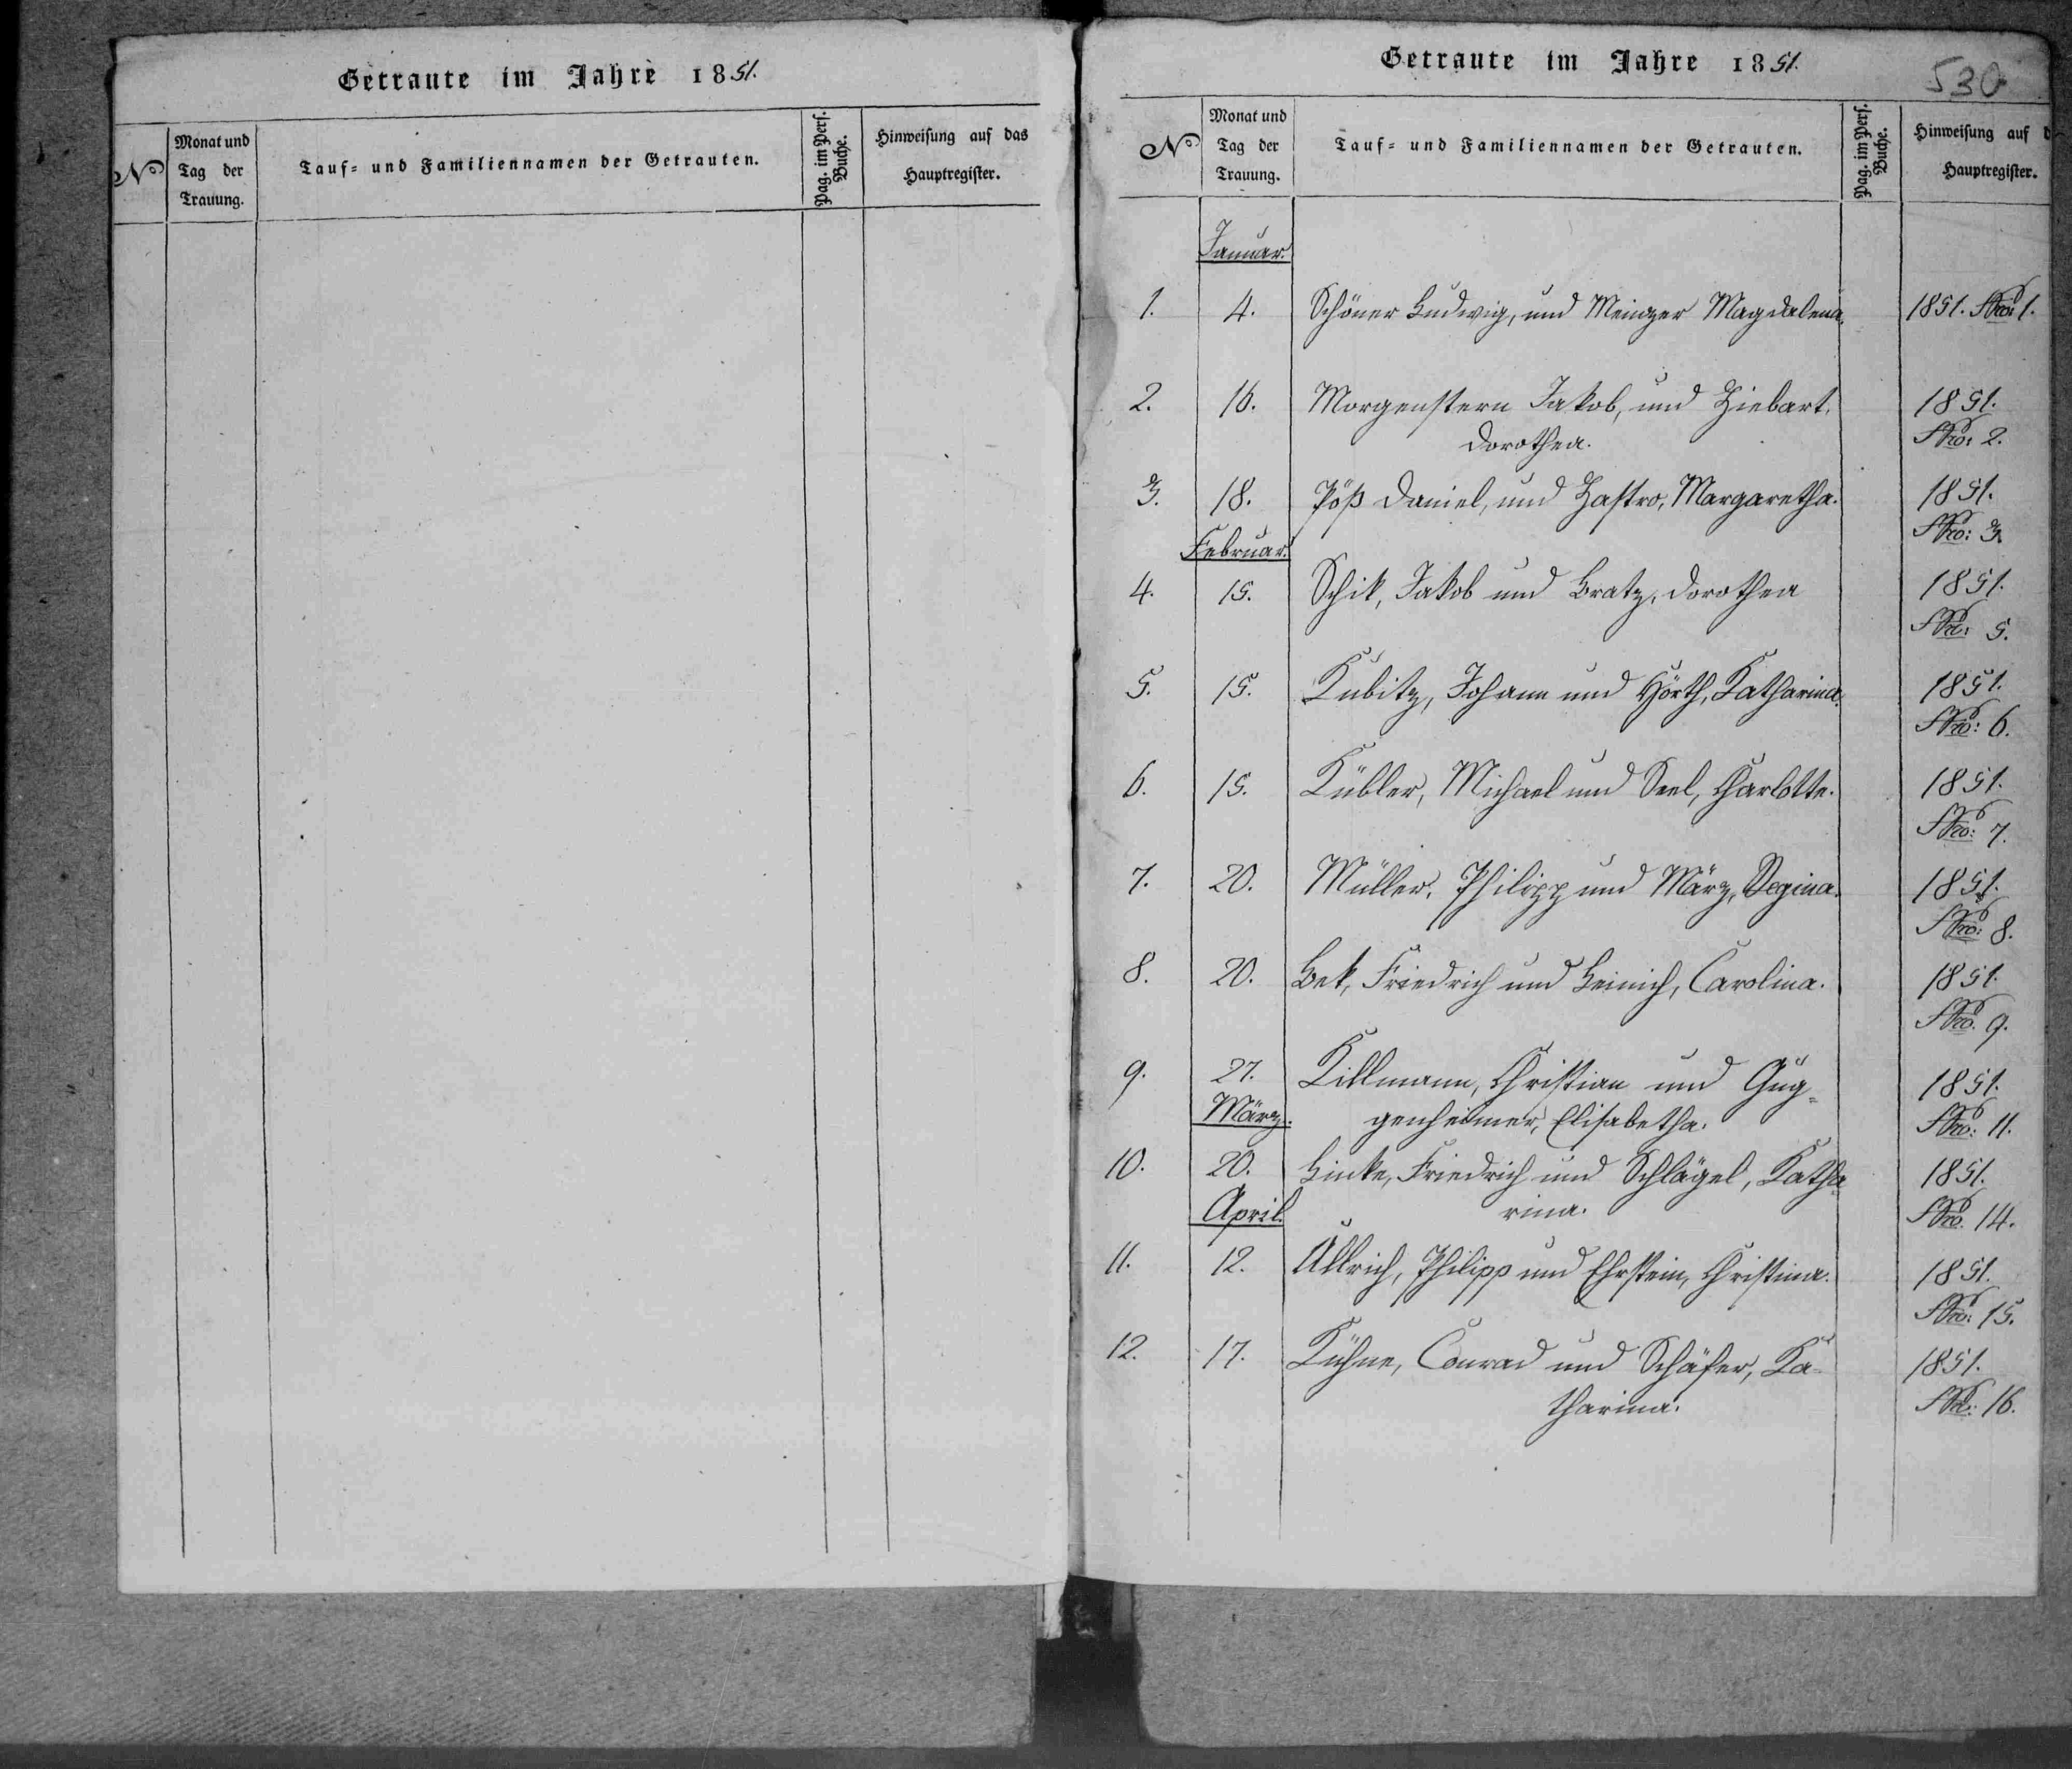 Getraute im Jahre 1851.
No
Monat und
Tag der
Trauung.
Tauf- und Familiennamen der Getrauten.
Pag. im Pers.
Buche.
Hinweisung auf das
Hauptregister.
Getraute im Jahre 1851.
530
No
Monat und
Tag der
Trauung.
Tauf- und Familiennamen der Getrauten.
Pag. im Pers.
Buche.
Hinweisung auf d
Hauptregister.
Januar.
1. 4. Schöner Ludwig, und Meinzer Magdalena. 1851. Nro: 1.
2. 16. Morgenstern Jakob, und Ziebart, 1851.
Dorothea. Nro: 2.
3. 18. Röß Daniel, und Zastro, Margaretha. 1851.
Nro: 3.
Februar.
4. 15. Schik, Jakob und Bratz, Dorothea 1851.
Nro: 5.
5. 15. Kubitz, Johann und Hörth, Katharina. 1851.
Nro: 6.
6. 15. Kübler, Michael und Seel, Charlotte. 1851.
Nro: 7.
7. 20. Müller, Philipp und März, Regina. 1851.
Nro: 8.
8. 20. Bek, Friedrich und Heinich, Carolina. 1851.
Nro. 9.
9. 27. Killmann, Christian und Gug- 1851.
März. genheimer, Elisabetha. Nro: 11.
10. 20. Linke, Friedrich und Schlägel, Katha- 1851.
April. rina. Nro. 14.
11. 12. Ullrich, Philipp und Ehrstein, Christina. 1851.
Nro: 15.
12. 17. Kühne, Conrad und Schäfer, Ka- 1851.
tharina. Nro: 16.